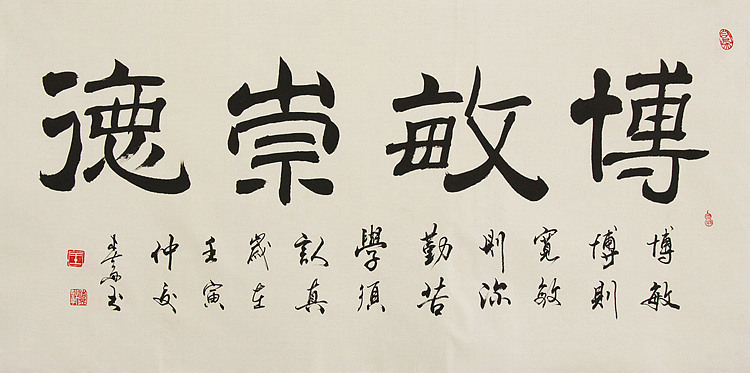 博敏崇德
博敏
博則
寬敏
則深
勤苦
學須
認真
歲在
壬寅
仲夏